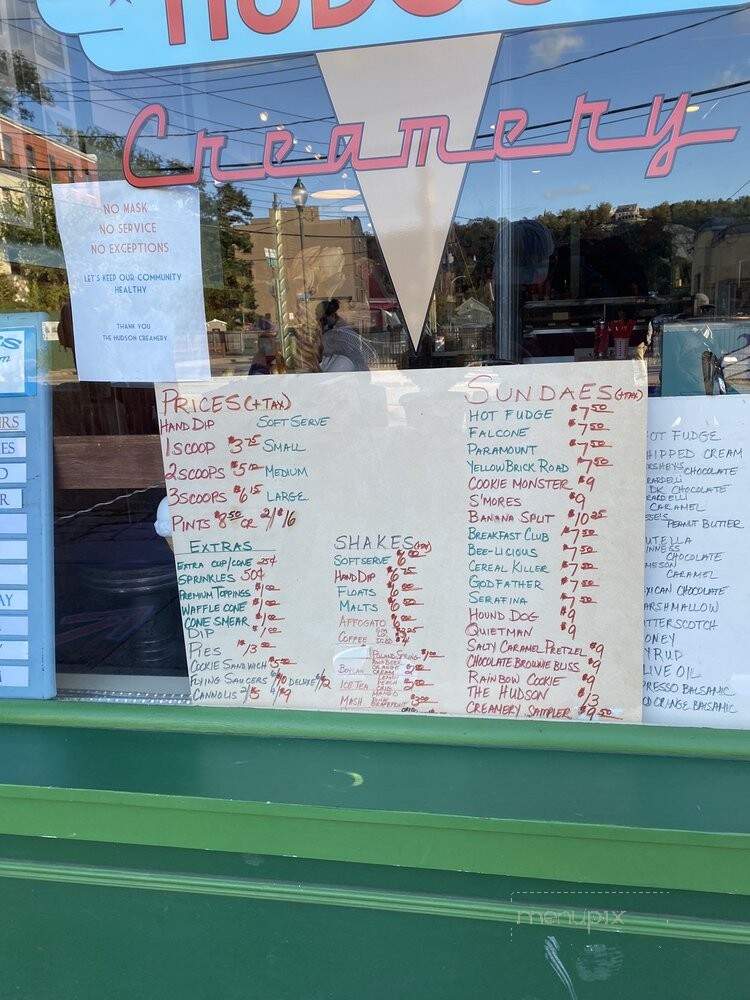 Creamery
NO MASK
NO SERVICE
NO EXCEPTIONS
LET'S KEEP OUR COMMUNITY
HEALTHY
THANK YOU
THE HUDSON CREAMERY
PRICES (+TAX)
HAND DIP SOFT SERVE
1 SCOOP $3.75 SMALL
2 SCOOPS MEDIUM
3 SCOOPS $6.15 LARGE
PINTS $8.50 OR 2/$16
EXTRAS
EXTRA CUP/CONE 25¢
SPRINKLES 50¢
PREMIUM TOPPINGS $1.00
WAFFLE CONE $1.00
CONE SMEAR $1.00
DIP $1.00
PIES $13.00
COOKIE SANDWICH
FLYING SAUCERS 6/$10 DELUXE 6/$12
CANNOLIS 2/$5 4/$9
SHAKES (+TAX)
SOFT SERVE
HAND DIP $6.75
FLOATS
MALTS
AFFOGATO
COFFEE
POLAND SPRING $1.00
BOYLAN
ICE TEA
MASH $3.00
SUNDAES (+TAX)
HOT FUDGE $7.50
FALCONE $7.50
PARAMOUNT $7.50
YELLOW BRICK ROAD $7.50
COOKIE MONSTER $9
S'MORES $9
BANANA SPLIT $10.25
BREAKFAST CLUB $7.50
BEE-LICIOUS $7.50
CEREAL KILLER $7.50
GODFATHER $7.50
SERAFINA $7.50
HOUND DOG $9
QUIETMAN $9
SALTY CARAMEL PRETZEL $9
CHOCOLATE BROWNIE BLISS $9
RAINBOW COOKIE $9
THE HUDSON $13
CREAMERY SAMPLER $9.50
OT FUDGE
HIPPED CREAM
CHOCOLATE
DK CHOCOLATE
CARAMEL
PEANUT BUTTER
UTELLA
CHOCOLATE
CARAMEL
XICAN CHOCOLATE
ARSHMALLOW
TTERSCOTCH
ONEY
YRUP
LIVE OIL
PRESSO BALSAMIC
BALSAMIC
menupix